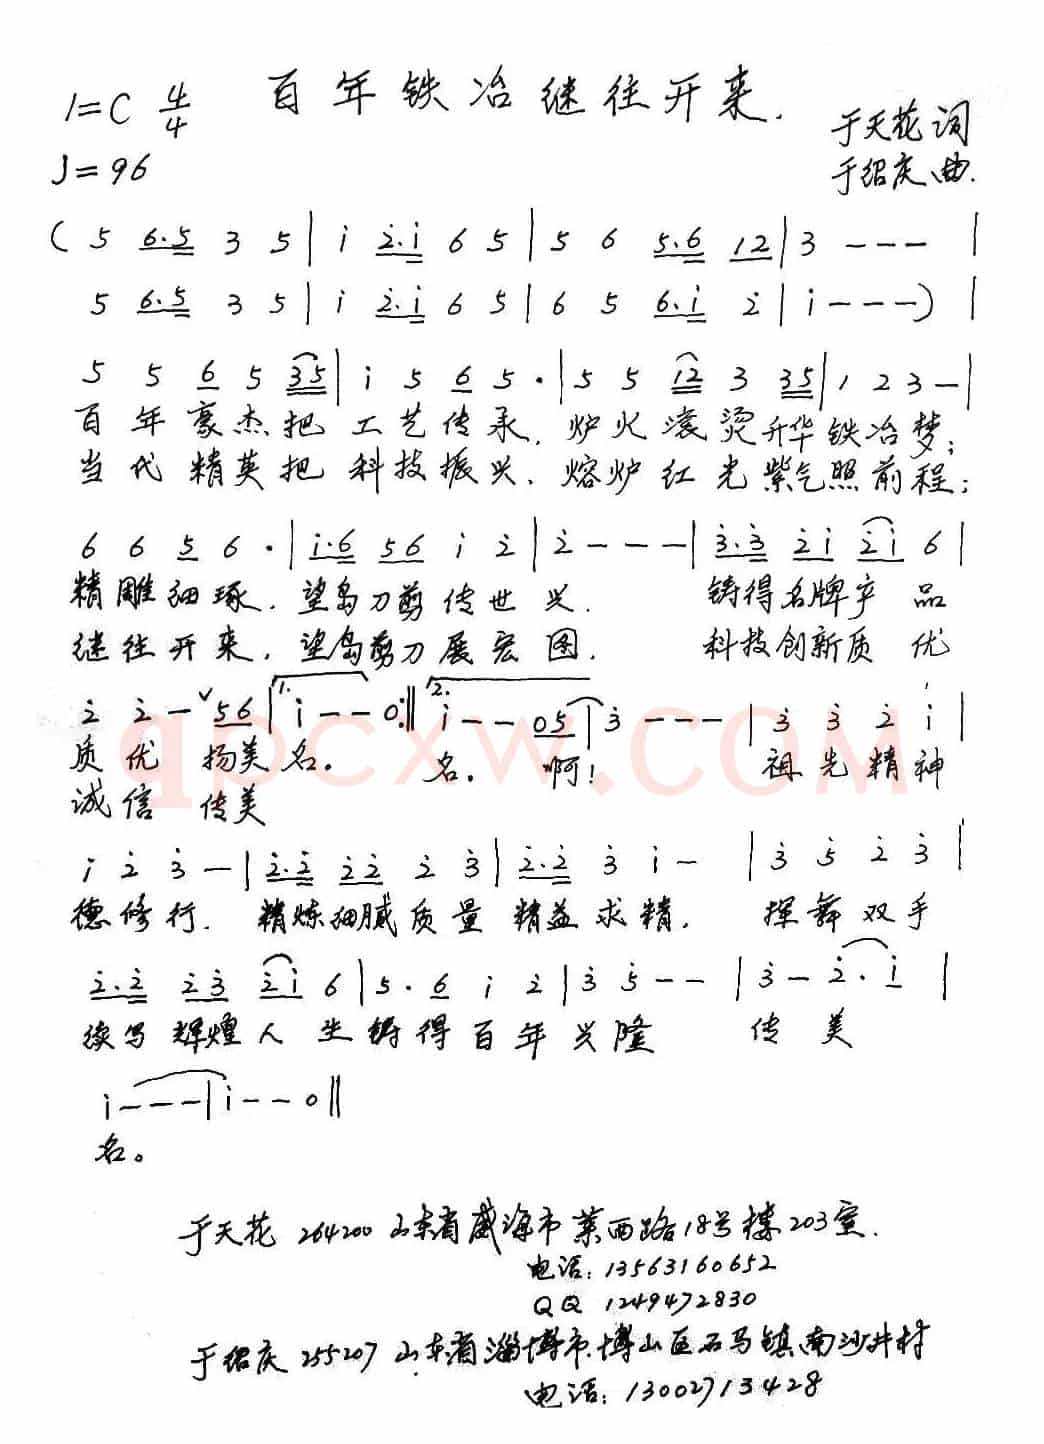 1=C 4/4 百年铁冶继往开来.
于天花词
J=96
于绍庆曲.
( 5 6.5 3 5 | i 2.i 6 5 | 5 6 5.6 12 | 3 --- |
5 6.5 3 5 | i 2.i 6 5 | 6 5 6.i 2 | i ---) |
5 5 6 5 35 | i 5 6 5 . | 5 5 12 3 35 | 1 2 3 - |
百年豪杰把工艺传承, 炉火滚烫升华铁冶梦;
当代精英把科技振兴. 熔炉红光紫气照前程;
6 6 5 6 . | i.6 56 i 2 | 2 --- | 3.3 2i 2i 6 |
精雕细琢. 望岛刀剪传世兴. 铸得名牌产品
继往开来, 望岛剪刀展宏图. 科技创新质优
2 2 - ˇ 56 | 1. i -- 0 :‖ 2. i -- 05 | 3 --- | 3 3 2 i |
质优 扬美名。 名. 啊! 祖先精神
诚信 传美
qpcxw.com
i 2 3 - | 2.2 22 2 3 | 2.2 3 i - | 3 5 2 3 |
德修行. 精炼细腻质量 精益求精, 挥舞双手
2.2 23 2i 6 | 5 . 6 i 2 | 3 5 -- | 3 - 2 . i |
续写辉煌人生铸得百年兴隆 传美
i --- | i -- 0 ‖
名。
于天花 264200 山东省威海市莱西路18号楼203室.
电话: 13563160652
QQ 1249472830
于绍庆 255207 山东省淄博市博山区石马镇南沙井村
电话: 13002713428